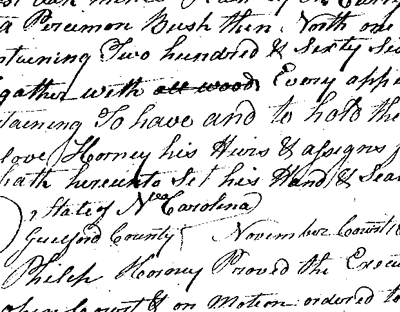 a Persimon Bush then North one
ntaining Two hundred & Sixty Six
gather with all wood Every appe
taining To have and to hold the
love Horney his Heirs & assigns f
hath hereunto Set his Hand & Sea
State of No Carolina
Guilford County November Court 18
Philip Horney Proved the Execu
open Court & on Motion ordered to